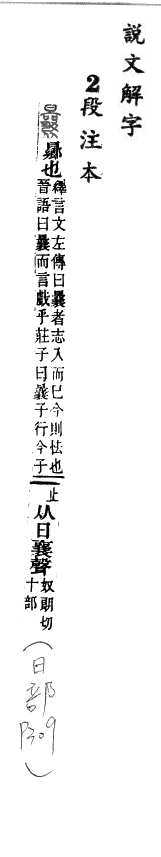 說文解字
2段注本
曩
曏也
釋言文左傳曰曩者志入而巳今則怯也
晉語曰曩而言戲乎莊子曰曩子行今子
止
从日襄聲
奴朗切
十部
(日部P309)